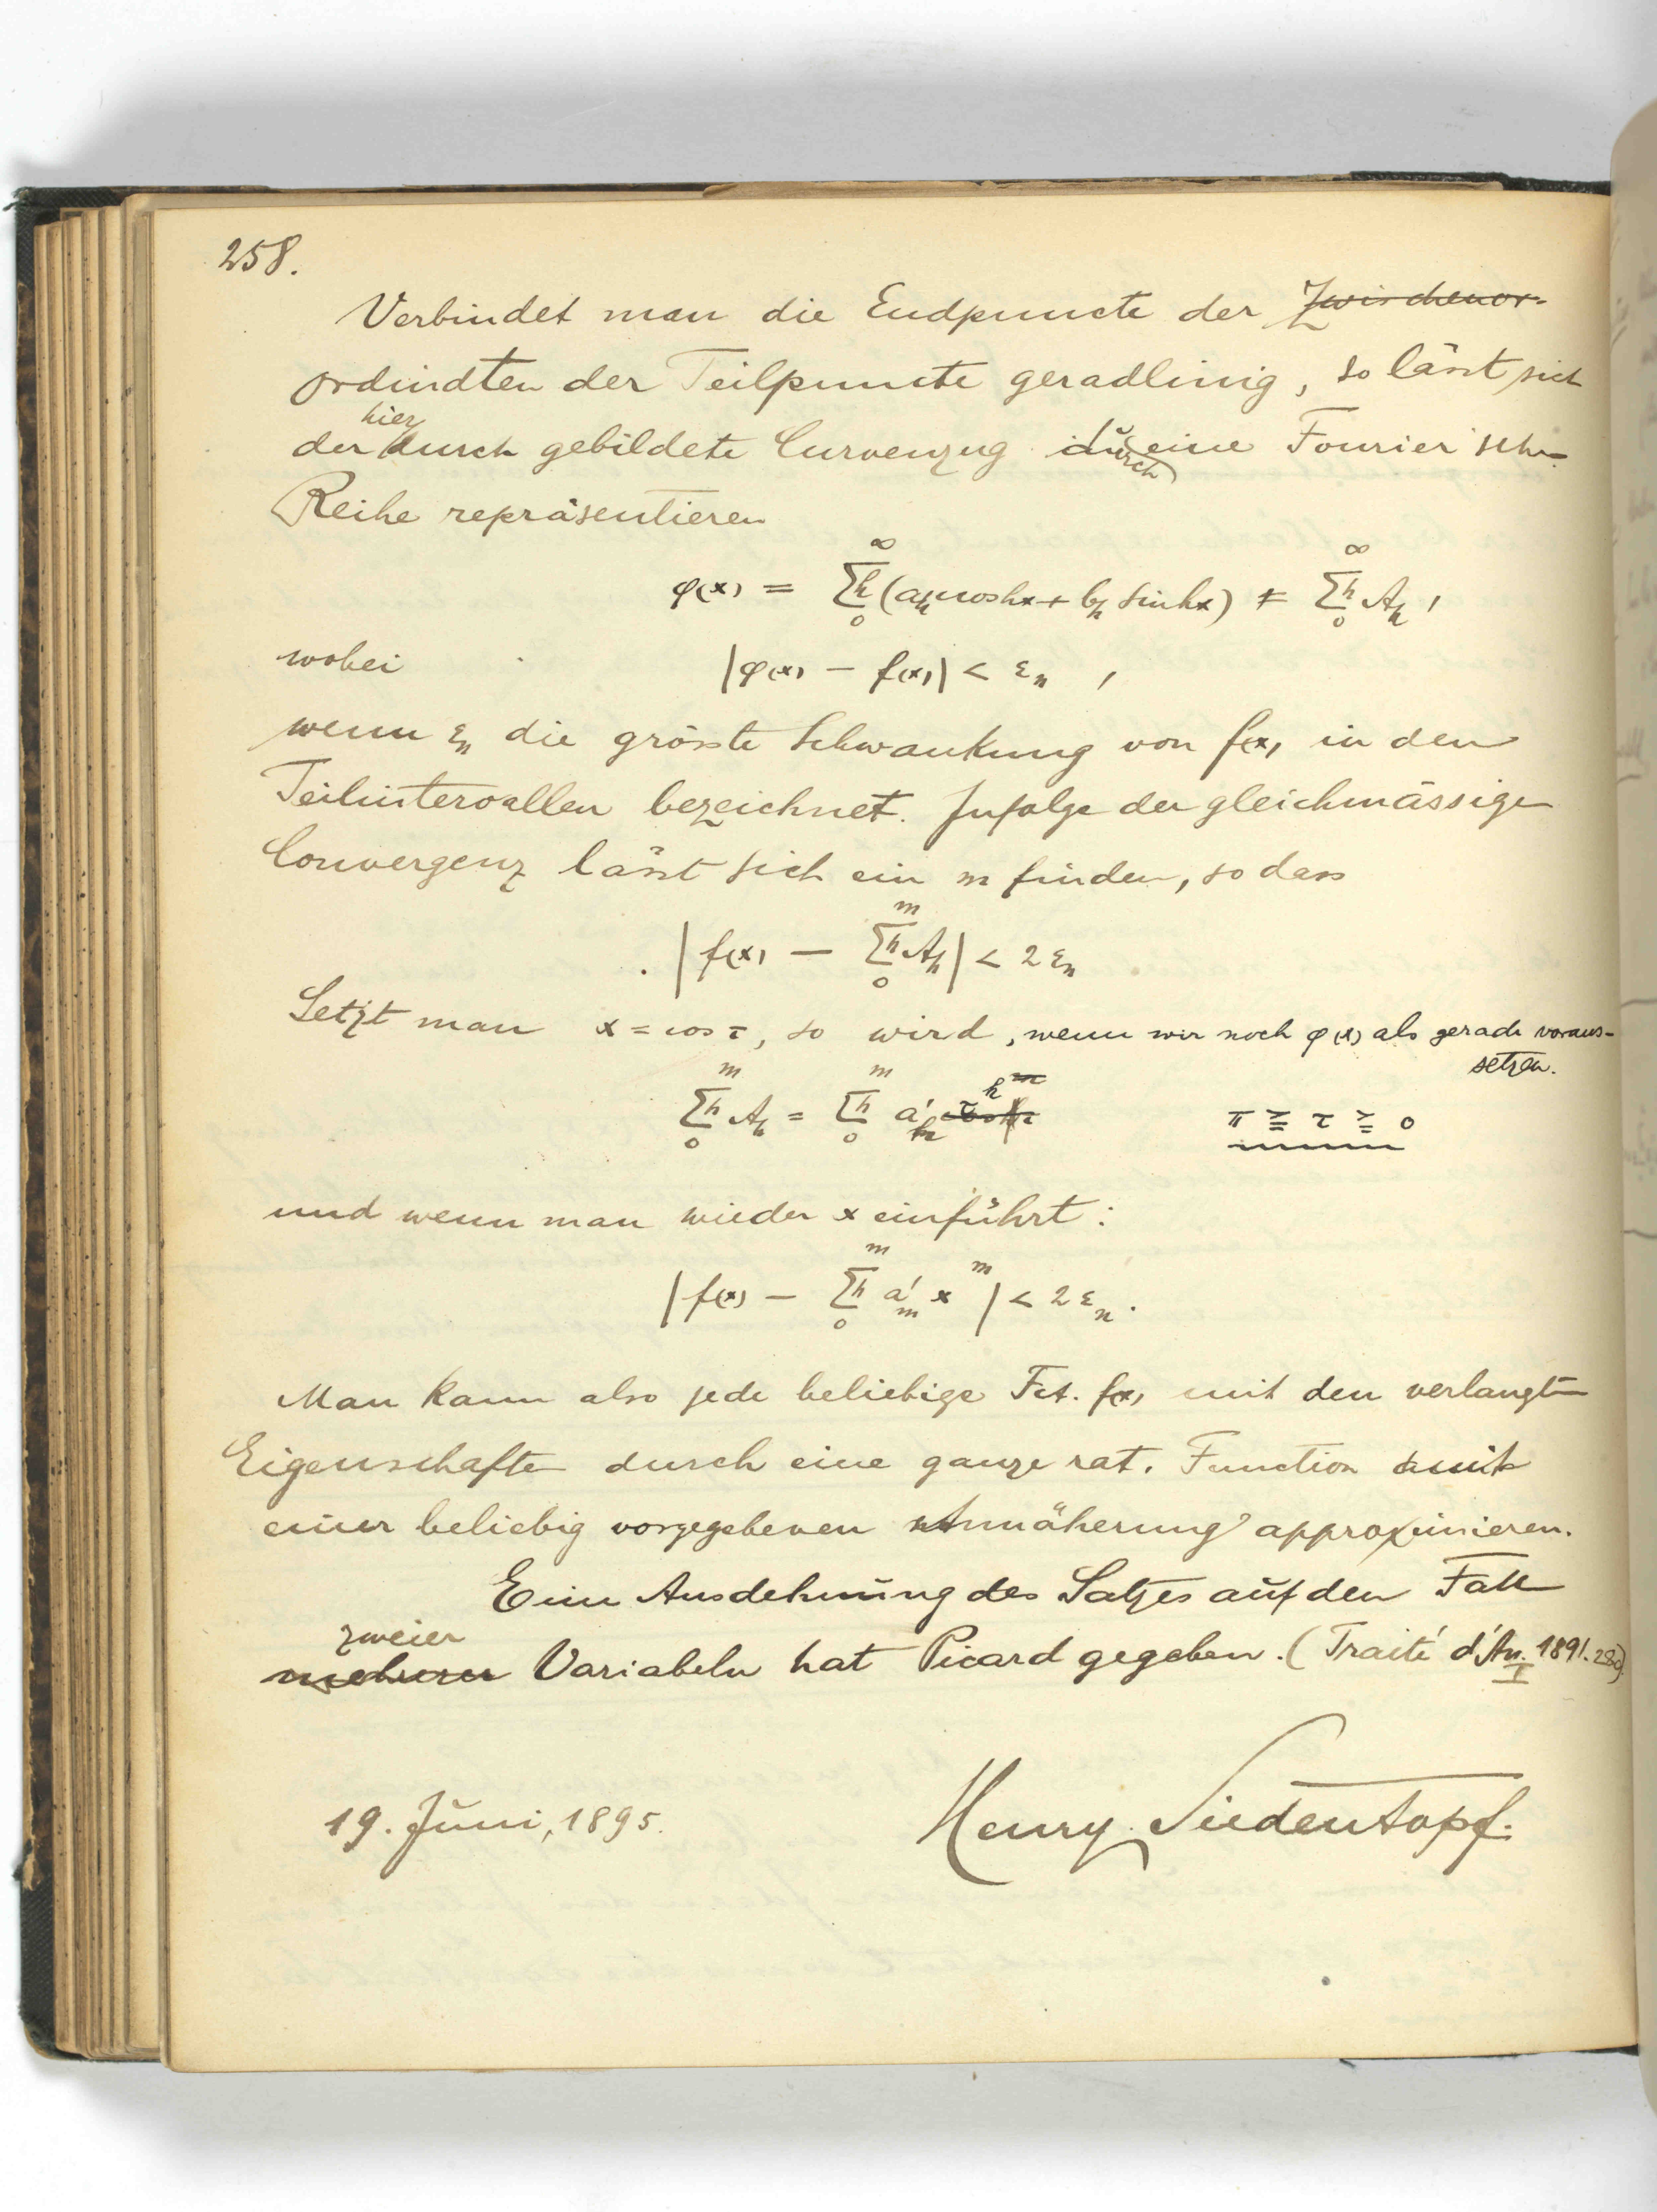 258.
Verbindet man die Endpuncte der Zwischenor-
ordinaten der Teilpuncte geradlinig, so lässt sich
hier
der durch gebildete Curvenzug durch eine Fourier'sche
Reihe repräsentieren
φ(x) = ∞Σh0 (a_h cos hx + b_h sin hx) = ∞Σh0 A_h,
wobei |φ(x) − f(x)| < ε_n ,
wenn ε_n die grösste Schwankung von f(x) in den
Teilintervallen bezeichnet. Zufolge der gleichmässigen
Convergenz lässt sich ein m finden, so dass
|f(x) − mΣh0 A_h| < 2 ε_n
Setzt man x = cos τ, so wird, wenn wir noch φ(x) als gerade voraus-
setzen.
mΣh0 A_h = mΣh0 a'_h τ^h π ≧ τ ≧ 0
und wenn man wieder x einführt:
|f(x) − mΣh0 a'_m x^m| < 2 ε_n.
Man kann also jede beliebige Fct. f(x) mit den verlangten
Eigenschaften durch eine ganze rat. Function mit
einer beliebig vorgegebenen Annäherung approximieren.
Eine Ausdehnung des Satzes auf den Fall
zweier
mehrerer Variabeln hat Picard gegeben. (Traité d'An. I 1891. 280).
19. Juni, 1895. Henry Siedentopf.